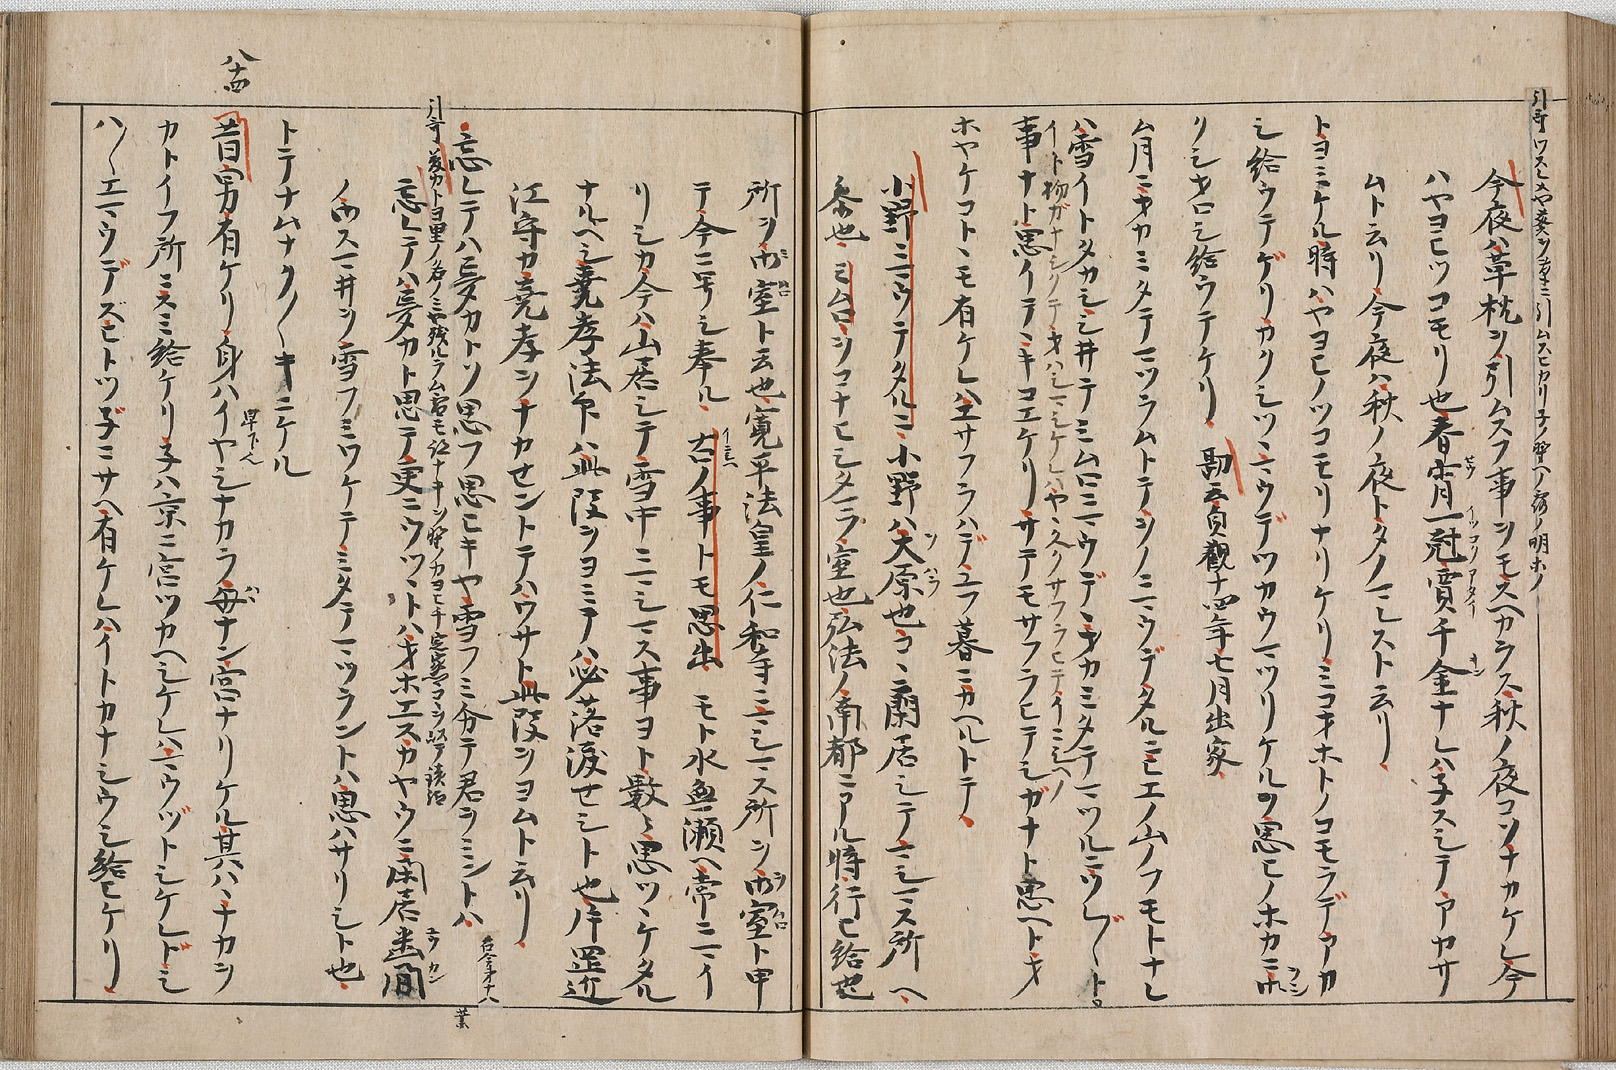 今夜ハ草枕ヲ引ムスフ事ヲモスヘカラス秋ノ夜コソナカケレ今
ハヤヨヒツコモリ也春宵一尅賈千金ナレハ子スミテアカサ
ムト云リ今夜ハ秋ノ夜トタノマレスト云リ
トヨミケル時ハヤヨヒノツコモリナリケリミコオホトノコモラデアカ
シ給ウテゲリカクシツヽマウデツカウマツリケルヲ思ヒノホカニ
リシオロシ給ウテケリ
勘云貞觀十四年七月出家
ム月ニオカミタテマツラムトテヲノニマウデタルニヒエノ山ノフモトナレ
ハ雪イトタカシ井テミムロニマウデヽオカミタテマツルニツレ〴〵ト
イト物ガナシクテオハシマシケレハヤヽ久クサフラヒテイニシヘノ
事ナト思イテヽキコエケリサテモサフラヒテシガナト思ヘトオ
ホヤケコトヽモ有ケレハエサフラハデユフ暮ニカヘルトテ
小野ニマウテタルニ 小野ハ大原也コヽニ閑居シテマシマス所ヘ
参也 ミムロ ヲコナヒシタマフ室也弘法ノ南都ニアル時行ヒ給也
所ヲ御室ト云也寛平法皇ノ仁和寺ニマシマス所ヲ御室ト申
テ今ニ号シ奉ル 古ノ事トモ思出 モト水無瀬ヘ常ニマイ
リシカ今ハ山居シテ雪中ニマシマス事ヨト數々思ツヽケタル
ナルヘシ堯孝法印ハ此段ヲヨミテハ必落涙セシト也
江守カ堯孝ヲナカセントテハワサト此段ヲヨムト云リ
忘レテハ夢カトソ思フ思ヒキヤ雪フミ分テ君ヲミントハ
古今第十八
忘レテハ夢カト思テ更ニウツヽトハオホエスカヤウニ閑居幽閑
ノ御スマ井ヲ雪フミワケテミタテマツラントハ思ハサリシト也
トテナムナク〳〵キニケル
八十四
昔男有ケリ身ハイヤシナカラ母ナン宮ナリケル其ハヽナカヲ
カトイフ所ニスミ給ケリ子ハ京ニ宮ツカヘシケレハマウヅトシケレドシ
ハ〳〵エマウデズヒトツ子ニサヘ有ケレハイトカナシウシ給ヒケリ